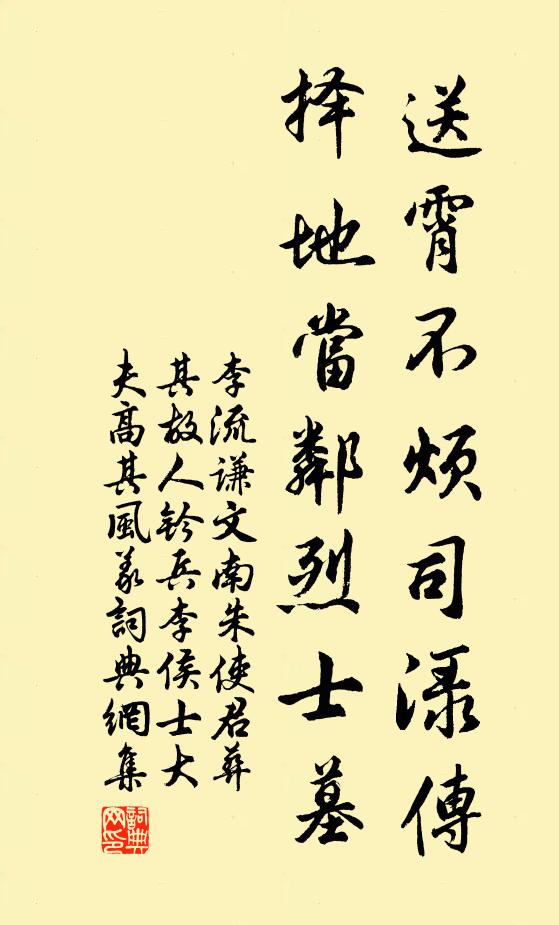 送霄不煩司渌傳
择地當鄰烈士墓
李流謙文南朱使君葬
其故人鈐兵李侯士大
夫高其風義詞典網集
詞典网印